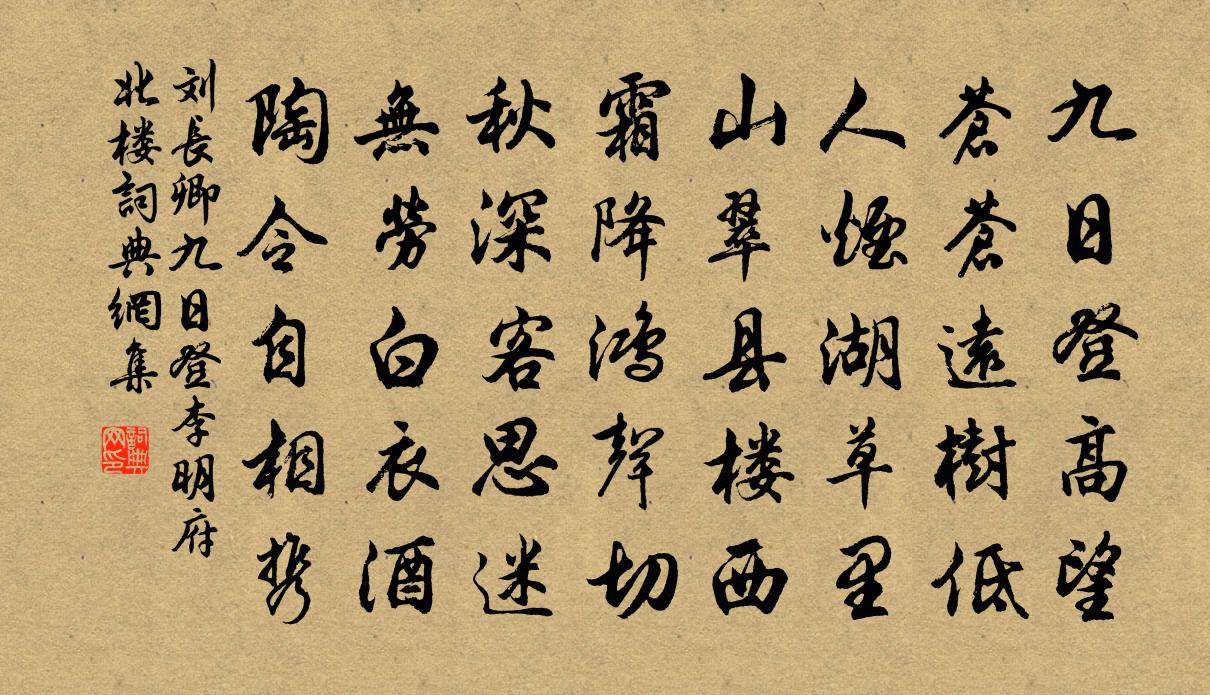 九日登高望
蒼蒼遠樹低
人煙湖草里
山翠县楼西
霜降鸿聲切
秋深客思迷
無勞白衣酒
陶令自相携
刘長卿九日登李明府
北楼詞典網集
詞典网印